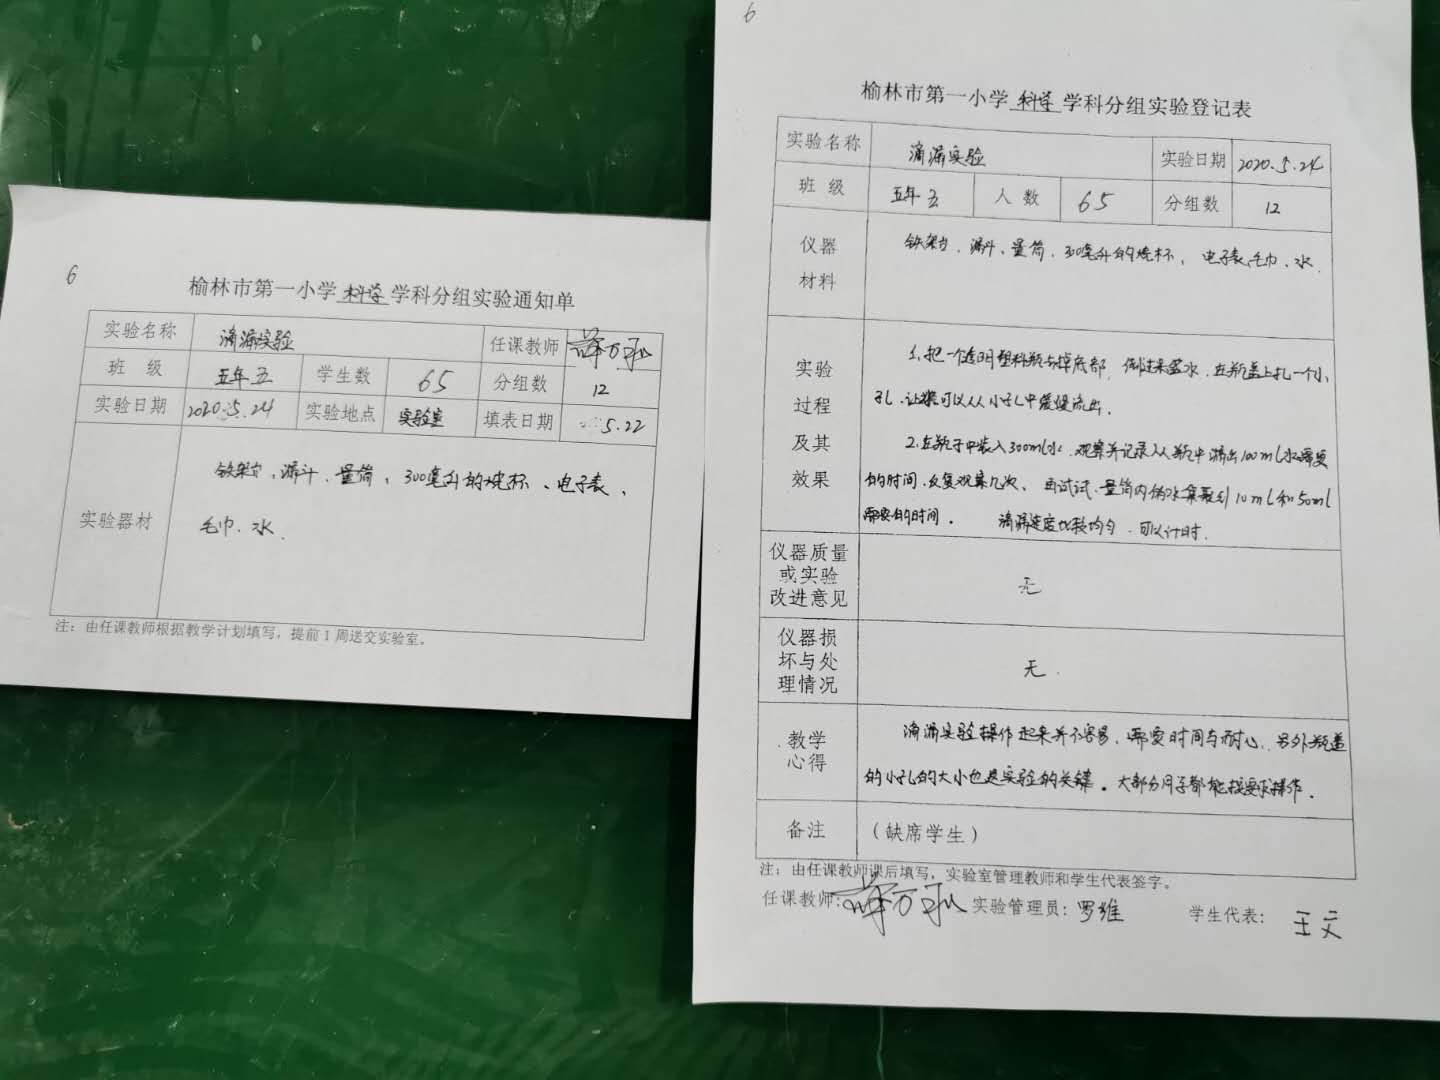 6
榆林市第一小学科学学科分组实验通知单
实验名称 滴漏实验 任课教师
班 级 五年五 学生数 65 分组数 12
实验日期 2020.5.24 实验地点 实验室 填表日期 5.22
实验器材 铁架台、漏斗、量筒、300毫升的烧杯、电子表、
毛巾、水.
注：由任课教师根据教学计划填写，提前1周送交实验室。
6
榆林市第一小学科学学科分组实验登记表
实验名称 滴漏实验 实验日期 2020.5.24
班 级 五年五 人 数 65 分组数 12
仪器
材料
铁架台、漏斗、量筒、300毫升的烧杯、电子表、毛巾、水.
实验
过程
及其
效果
1、把一个透明塑料瓶去掉底部，倒过来盛水，在瓶盖上扎一个小
孔.让水可以从小孔中缓慢流出.
2.在瓶子中装入300ml水.观察并记录从瓶中滴出100ml水需要
的时间.反复观察几次、再试试、量筒内的水集聚到10ml和50ml
需要的时间. 滴漏速度比较均匀.可以计时.
仪器质量
或实验
改进意见
无
仪器损
坏与处
理情况
无.
教学
心得
滴漏实验操作起来并不容易、需要时间与耐心、另外瓶盖
的小孔的大小也是实验的关键。大部分同学都能按要求操作.
备注 （缺席学生）
注：由任课教师课后填写，实验室管理教师和学生代表签字。
任课教师： 实验管理员：罗维 学生代表：王文